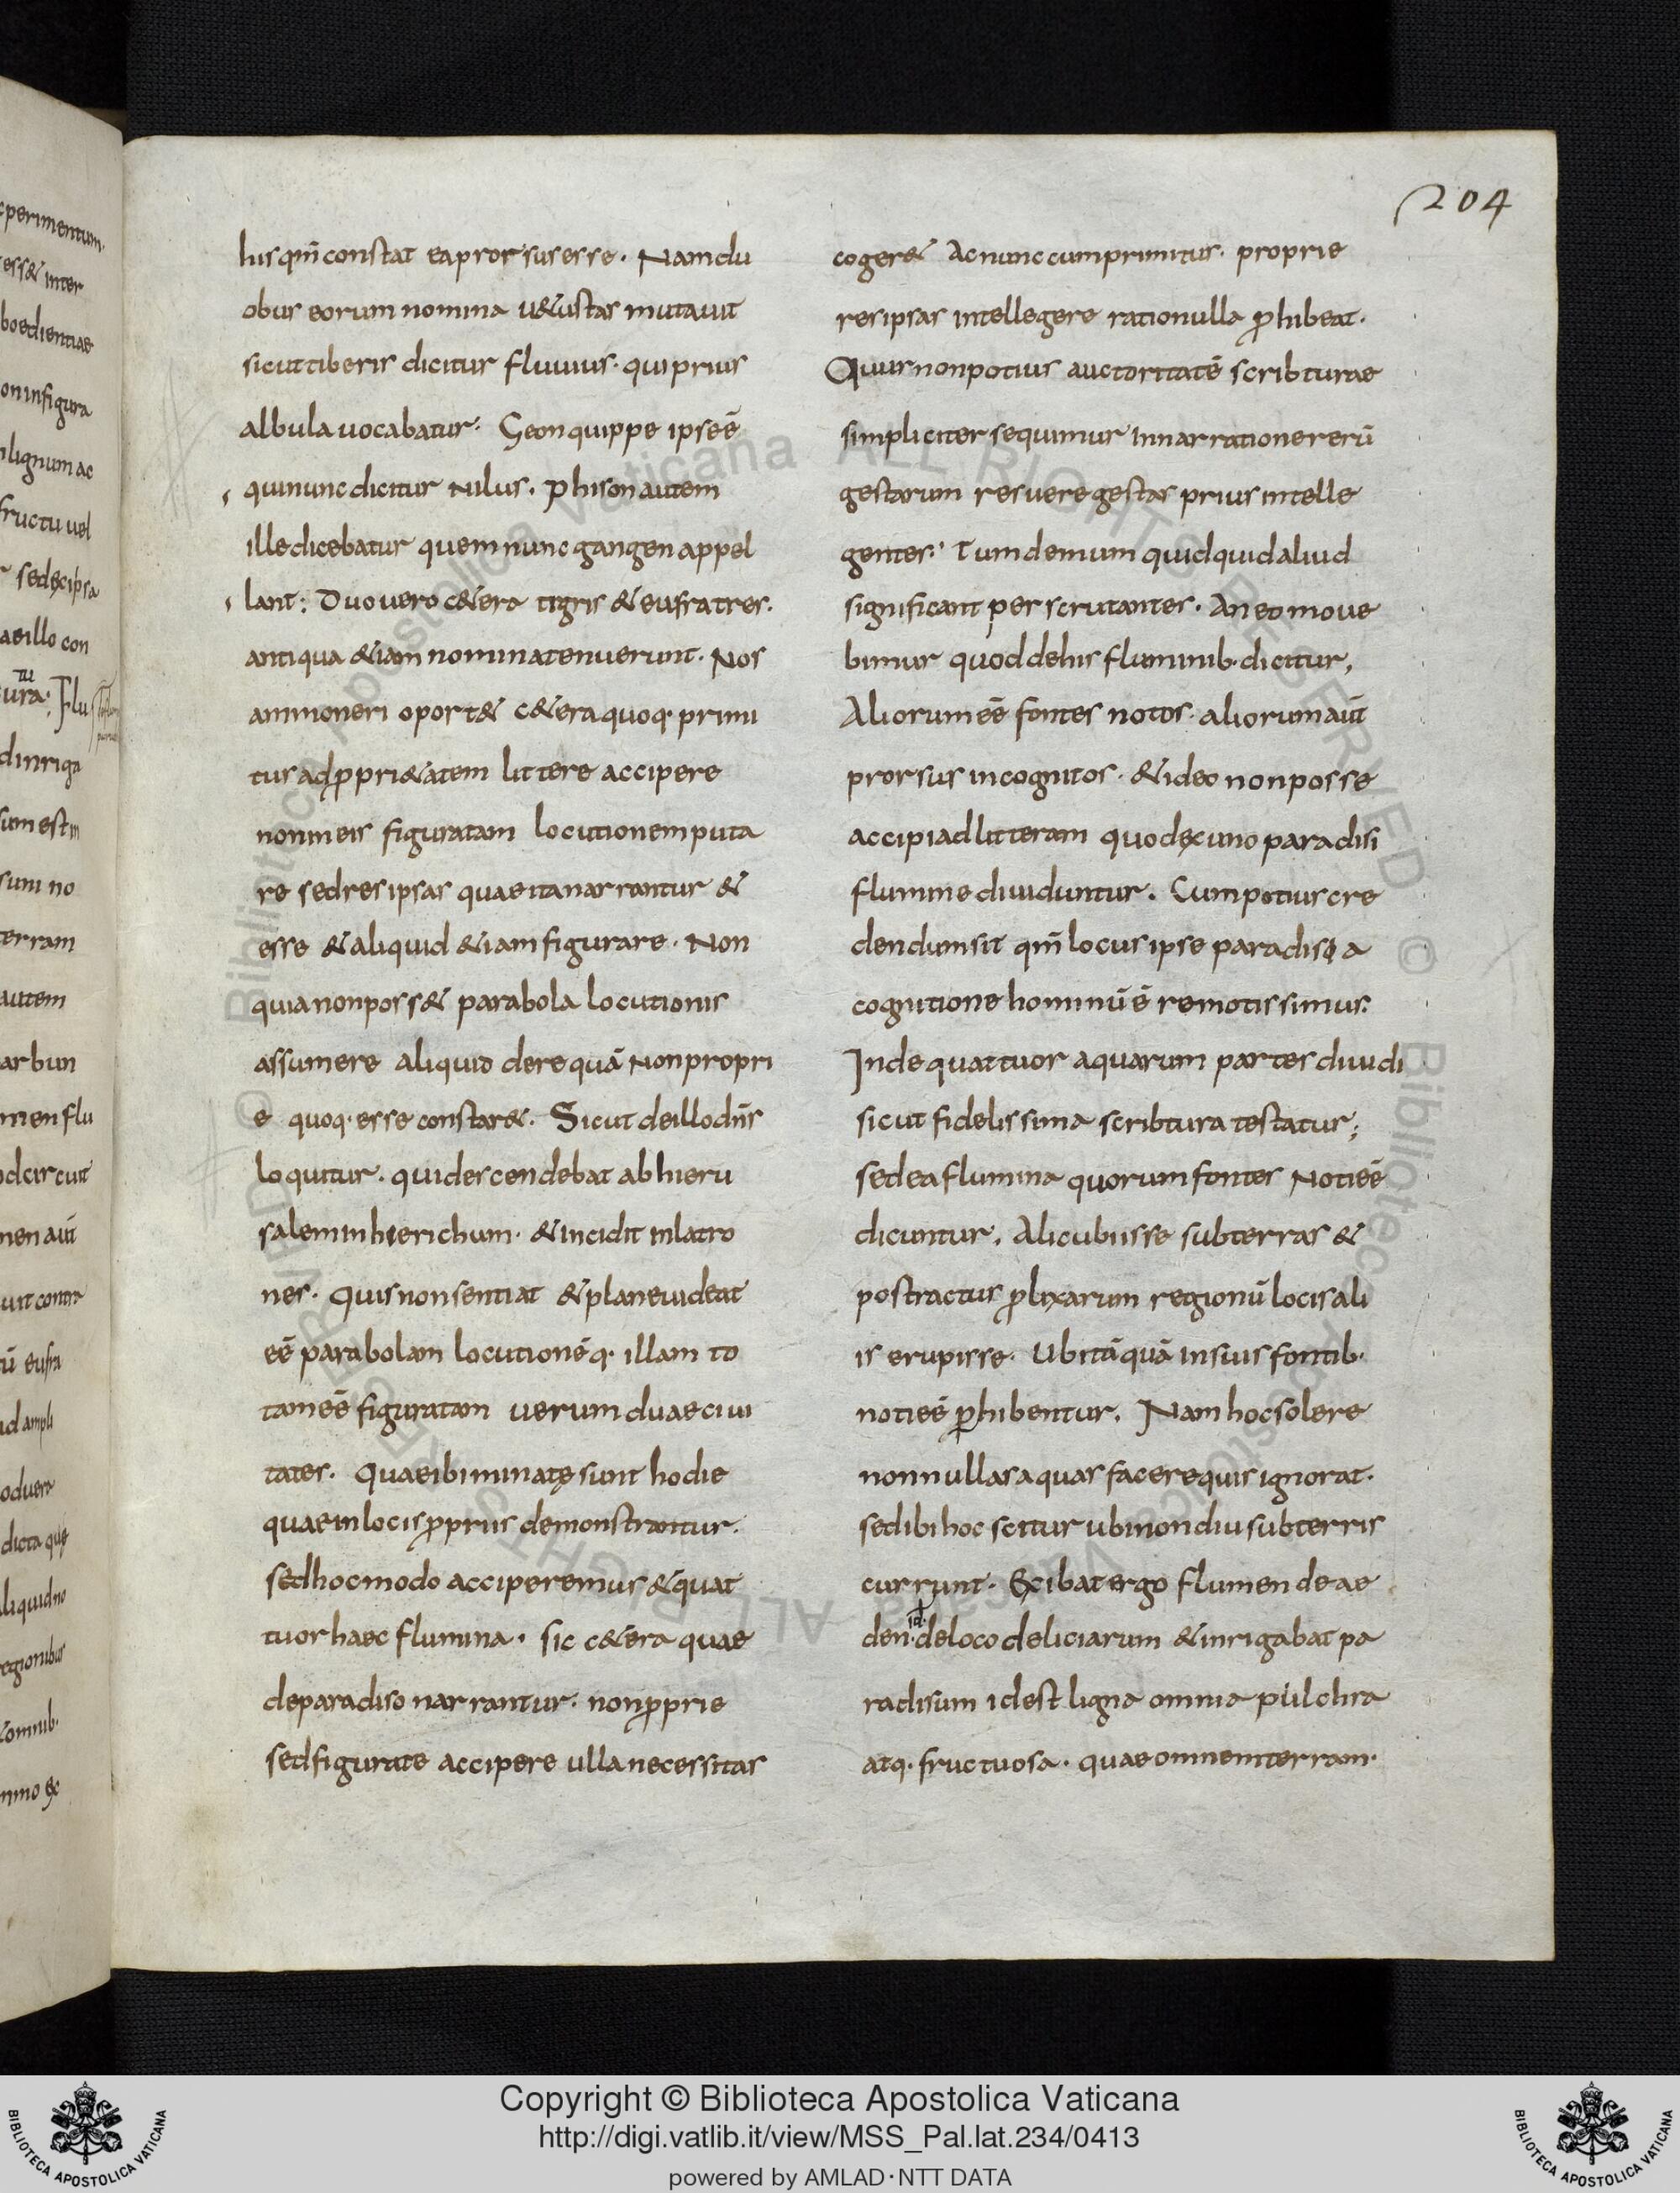 204
his qm̄ constat ea prorsus esse. Nam du
obus eorum nomina u&ustas mutauit
sicut tiberis dicitur fluuius· qui prius
albula uocabatur· Geon quippe ipse ē
qui nunc dicitur nilus. Phison autem
ille dicebatur quem nunc gangen appel
lant; Duo uero c&era tigris & eufratres.
antiqua &iam nomina tenuerunt. Nos
ammoneri oport& c&era quoq· primi
tus ad ꝓpri&atem littere accipere
non in eis figuratam locutionem puta
re sed res ipsas quae ita narrantur &
esse & aliquid &iam figurare. Non
quia non poss& parabola locutionis
assumere aliquid de re quā non propri
e quoq· esse constar&. Sicut de illo dn̄s
loquitur. qui descendebat ab hieru
salem in hierichum· & incidit in latro
nes. Quis non sentiat & plane uideat
eē parabolam locutionēq· illam to
tam eē figuratam uerum duae ciui
tates. Quae ibi minatę sunt hodie
quae in locis ꝓpriis demonstrantur.
sed hoc modo acciperemus & quat
tuor haec flumina. sic c&era quae
de paradiso narrantur. non ꝓprie
sed figurate accipere ulla necessitas
coger& Ac nunc cum primitus. proprie
res ipsas intellegere ratio nulla ꝓhibeat.
Quur non potius auctoritatē scribturae
simpliciter sequimur in narratione rerū
gestarum res uere gestas prius intelle
gentes. Tum demum quidquid aliud
significant perscrutantes. An eo moue
bimur quod de his fluminib· dicitur,
Aliorum eē fontes notos· aliorum aut̄
prorsus incognitos· & ideo non posse
accipi ad litteram quod ex uno paradisi
flumine diuiduntur. Cum potius cre
dendum sit qm̄ locus ipse paradisi a
cognitione hominū ē remotissimus.
Inde quattuor aquarum partes diuidi
sicut fidelissima scribtura testatur;
sed ea flumina quorum fontes noti eē
dicuntur. Alicubi isse sub terras &
post ractus ꝓlixarum regionū locis ali
is erupisse. Ubi tā quā in suis fontib·
noti eē ꝑhibentur. Nam hoc solere
nonnullas aquas facere quis ignorat.
sed ibi hoc scitur ubi non diu sub terris
currunt. Exibat ergo flumen de ae
id·
den· de loco deliciarum & inrigabat pa
radisum id est ligna omnia pulchra
atq· fructuosa. quae omnem terram.
Copyright © Biblioteca Apostolica Vaticana
http://digi.vatlib.it/view/MSS_Pal.lat.234/0413
powered by AMLAD·NTT DATA
BIBLIOTECA APOSTOLICA VATICANA
BIBLIOTECA APOSTOLICA VATICANA